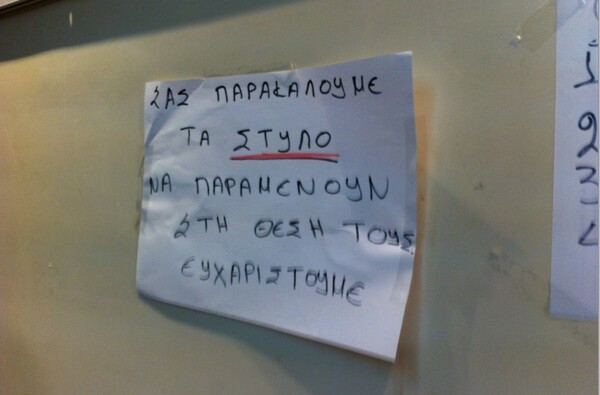 ΣΑΣ ΠΑΡΑΚΑΛΟΥΜΕ
ΤΑ ΣΤΥΛΟ
ΝΑ ΠΑΡΑΜΕΝΟΥΝ
ΣΤΗ ΘΕΣΗ ΤΟΥΣ
ΕΥΧΑΡΙΣΤΟΥΜΕ